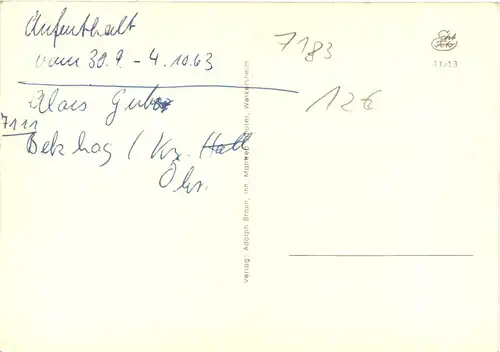 Aufenthalt
vom 30.9. - 4.10.63
Klaus Huber
7111
Belzhag / Kr. Hall
Öhr.
7183
12 €
Echt Foto
Verlag: Adolph Braun, Inh. Manfred Adler, Weikersheim